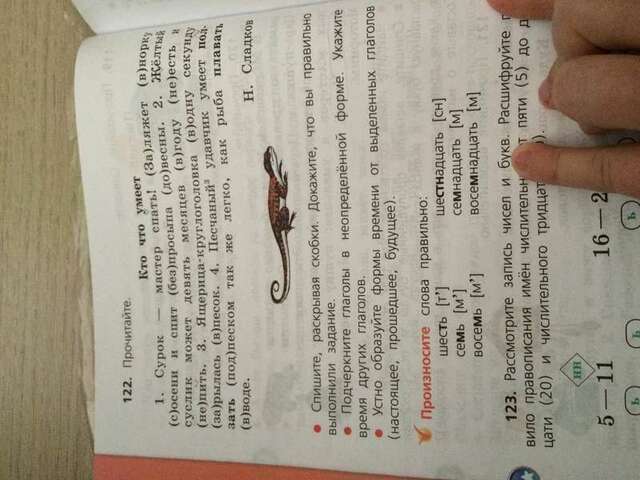 122. Прочитайте.
Кто что умеет
1. Сурок — мастер спать! (За)ляжет (в)норку
(с)осени и спит (без)просыпа (до)весны. 2. Жёлтый
суслик может девять месяцев (в)году (не)есть и
(не)пить. 3. Ящерица-круглоголовка (в)одну секунду
(за)рылась (в)песок. 4. Песчаный удавчик умеет пол-
зать (под)песком так же легко, как рыба плавать
(в)воде.
Н. Сладков
• Спишите, раскрывая скобки. Докажите, что вы правильно
выполнили задание.
• Подчеркните глаголы в неопределённой форме. Укажите
время других глаголов.
• Устно образуйте формы времени от выделенных глаголов
(настоящее, прошедшее, будущее).
Произносите слова правильно:
шесть [т’] шестнадцать [сн]
семь [м’] семнадцать [м]
восемь [м’] восемнадцать [м]
123. Рассмотрите запись чисел и букв. Расшифруйте
вило правописания имён числительных от пяти (5) до
цати (20) и числительного тридцать
нн
5—11 16—2
ь ь